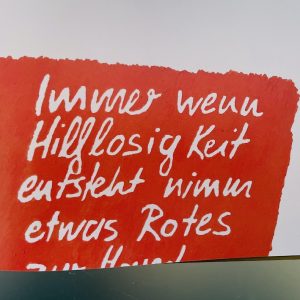 Immer wenn
Hilflosigkeit
entsteht nimm
etwas Rotes
zur